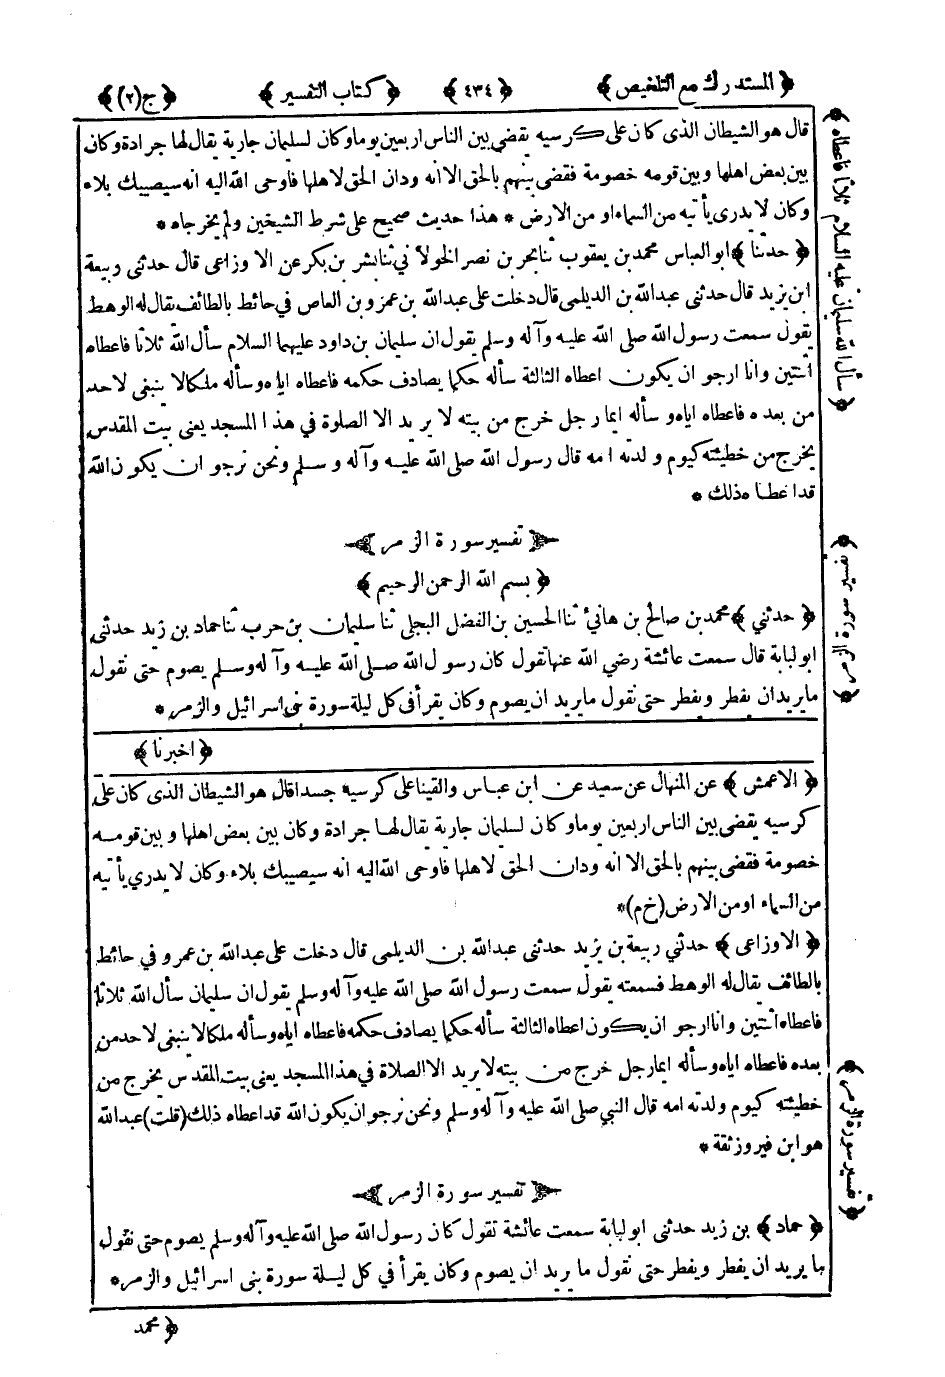 ﴿ المستدرك مع التلخيص ﴾ ﴿ ٤٣٤ ﴾ ﴿ كتاب التفسير ﴾ ﴿ ج(٢) ﴾
قال هو الشيطان الذى كان على كرسيه يقضى بين الناس اربعين يوما وكان لسليمان جارية يقال لها جرادة وكان
بين بعض اهلها وبين قومه خصومة فقضى بينهم بالحق الا انه ودان الحق لاهلها فاوحى الله اليه انه سيصيبك بلاء
وكان لا يدرى يأتيه من السماء او من الارض * هذا حديث صحيح على شرط الشيخين ولم يخرجاه *
﴿ حدثنا ﴾ ابو العباس محمد بن يعقوب ثنا بحر بن نصر الخولاني ثنا بشر بن بكر عن الاوزاعى قال حدثنى ربيعة
ابن يزيد قال حدثنى عبدالله بن الديلمى قال دخلت على عبدالله بن عمرو بن العاص في حائط بالطائف يقال له الوهط
يقول سمعت رسول الله صلى الله عليه وآله وسلم يقول ان سليمان بن داود عليهما السلام سأل الله ثلاثا فاعطاه
اثنتين وانا ارجو ان يكون اعطاه الثالثة سأله حكما يصادف حكمه فاعطاه اياه وسأله ملكا لا ينبغى لاحد
من بعده فاعطاه اياه وسأله ايما رجل خرج من بيته لا يريد الا الصلوة في هذا المسجد يعنى بيت المقدس
يخرج من خطيئته كيوم ولدته امه قال رسول الله صلى الله عليه وآله وسلم ونحن نرجو ان يكون الله
قد اعطاه ذلك *
تفسير سورة الزمر
﴿ بسم الله الرحمن الرحيم ﴾
﴿ حدثني ﴾ محمد بن صالح بن هانئ ثنا الحسين بن الفضل البجلى ثنا سليمان بن حرب ثنا حماد بن زيد حدثنى
ابو لبابة قال سمعت عائشة رضي الله عنها تقول كان رسول الله صلى الله عليه وآله وسلم يصوم حتى نقول
ما يريد ان يفطر ويفطر حتى نقول ما يريد ان يصوم وكان يقرأ فى كل ليلة سورة بنى اسرائيل والزمر *
﴿ اخبرنا ﴾
﴿ الاعمش ﴾ عن المنهال عن سعيد عن ابن عباس والقينا على كرسيه جسدا قال هو الشيطان الذى كان على
كرسيه يقضى بين الناس اربعين يوما وكان لسليمان جارية يقال لها جرادة وكان بين بعض اهلها وبين قومه
خصومة فقضى بينهم بالحق الا انه ودان الحق لاهلها فاوحى الله اليه انه سيصيبك بلاء وكان لا يدري يأتيه
من السماء او من الارض (خ م) *
﴿ الاوزاعى ﴾ حدثني ربيعة بن يزيد حدثنى عبدالله بن الديلمى قال دخلت على عبدالله بن عمرو في حائط
بالطائف يقال له الوهط فسمعته يقول سمعت رسول الله صلى الله عليه وآله وسلم يقول ان سليمان سأل الله ثلاثا
فاعطاه اثنتين وانا ارجو ان يكون اعطاه الثالثة سأله حكما يصادف حكمه فاعطاه اياه وسأله ملكا لا ينبغى لاحد من
بعده فاعطاه اياه وسأله ايما رجل خرج من بيته لا يريد الا الصلاة في هذا المسجد يعنى بيت المقدس يخرج من
خطيئته كيوم ولدته امه قال النبي صلى الله عليه وآله وسلم ونحن نرجو ان يكون الله قد اعطاه ذلك (قلت) عبدالله
هو ابن فيروز ثقة *
تفسير سورة الزمر
﴿ حماد ﴾ بن زيد حدثنى ابو لبابة سمعت عائشة تقول كان رسول الله صلى الله عليه وآله وسلم يصوم حتى نقول
ما يريد ان يفطر ويفطر حتى نقول ما يريد ان يصوم وكان يقرأ في كل ليلة سورة بنى اسرائيل والزمر *
﴿ محمد
﴿ سأل الله سليمان عليه السلام ثلاثا فاعطاه ﴾
﴿ تفسير سورة الزمر ﴾